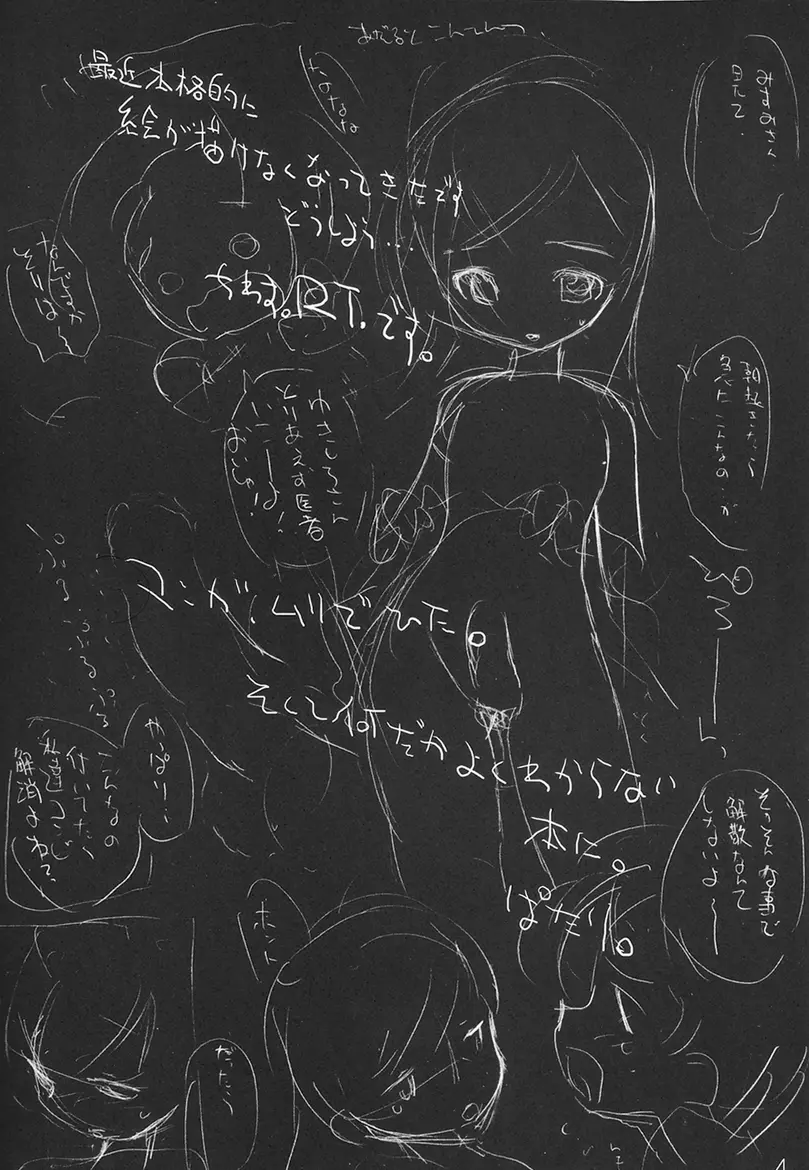 あだると こんてんつ
最近本格的に
絵が描けなくなってきたです
どうしよう…
ちわす。R.T.です。
マンガ、ムリでひた。
そして何だかよくわからない
本に。
ぱたり。
みすみさん
見て.
なんですか
それは〜
朝起きたら
急にこんなの…が
ゆきしろさん
とりあえず医者
いこーよ!
ぷる ぷるぷる
やっぱり…
こんなの
付いてたら
私達コンビ
解消よねっ
そっそんな事で
解散なんて
しないよ〜
ホント
だったら